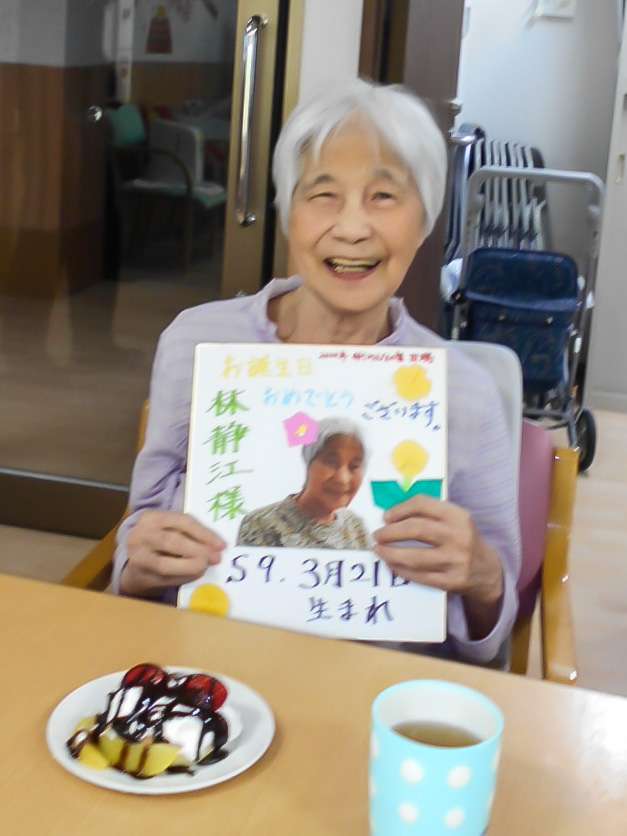 お誕生日
おめでとう
ございます。
林静江様
S9. 3月21日
生まれ